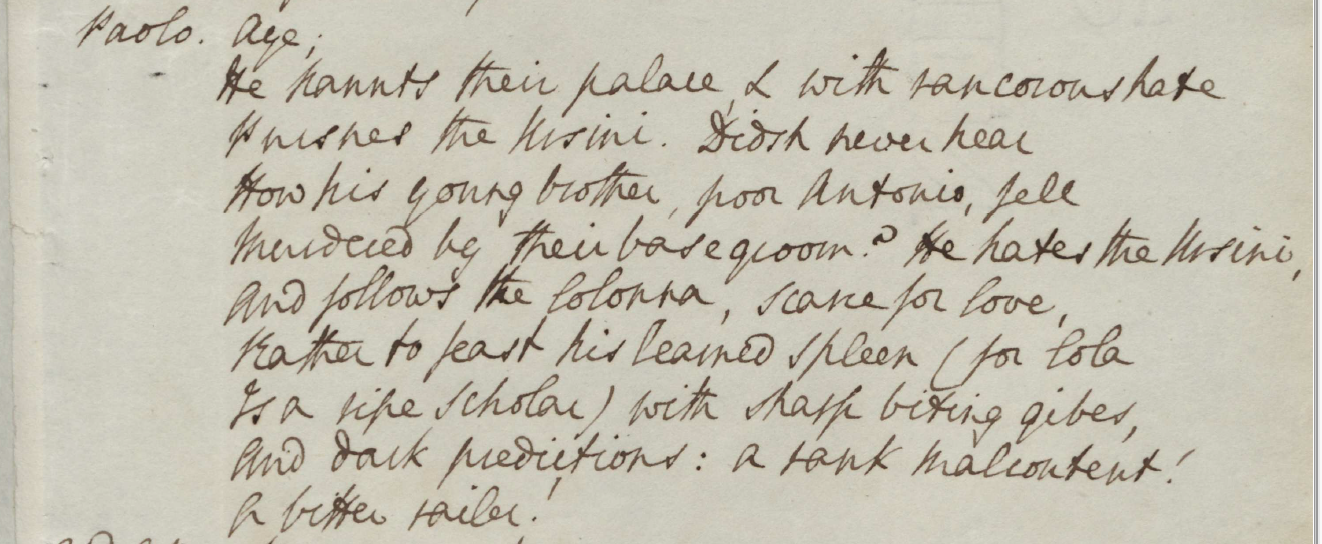 Paolo. Aye;
He haunts their palace, & with rancorous hate
Pursues the Ursini. Didst never hear
How his young brother, poor Antonio, fell
Murdered by their base groom? He hates the Ursini,
And follows the Colonna, scarce for love,
Rather to feast his learned spleen (for Cola
Is a ripe scholar) with sharp biting gibes,
And dark predictions: a rank malcontent!
A bitter railer!